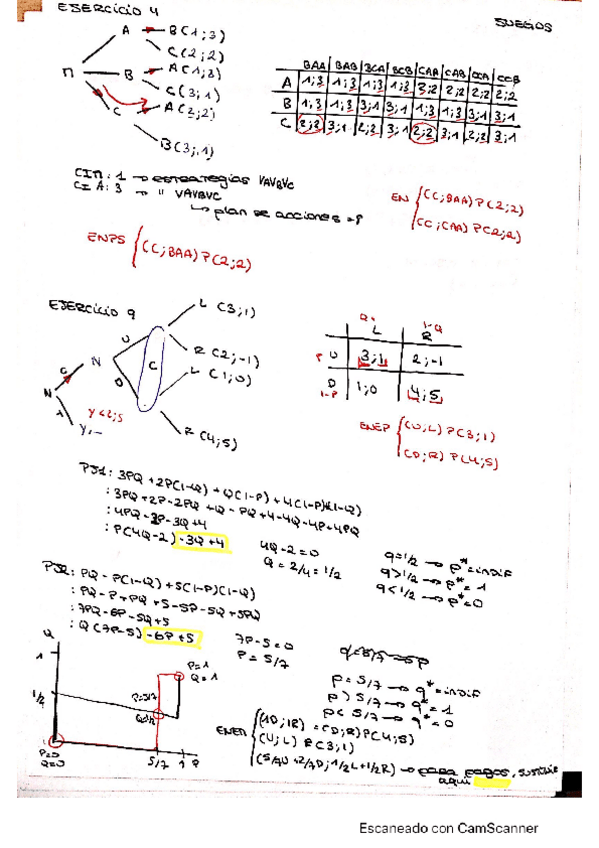 EJERCICIO 4
JUEGOS
A
B (1;3)
C (2;2)
M
B
A (1;3)
C (3;1)
C
A (2;2)
B (3;1)
BAA BAB BCA BCB CAA CAB CCA CCB
A 1;3 1;3 1;3 1;3 2;2 2;2 2;2 2;2
B 1;3 1;3 3;1 3;1 1;3 1;3 3;1 3;1
C 2;2 3;1 2;2 3;1 2;2 3;1 2;2 3;1
CIM: 1 → estrategias VAVBVC
CI A: 3 → " VAVBVC
↳ plan de acciones = 8
EN { (C; BAA) P(2;2)
(C; CAA) P(2;2)
ENPS { (C; BAA) P(2;2)
EJERCICIO 9
L (3;1)
R (2;-1)
L (1;0)
R (4;5)
N
G
N
U
D
C
Y<2;5
Y,-
Q 1-Q
L R
P U 3;1 2;-1
1-P D 1;0 4;5
ENEP { (U;L) P(3;1)
(D;R) P(4;5)
PJ1: 3PQ + 2P(1-Q) + Q(1-P) + 4(1-P)(1-Q)
: 3PQ + 2P - 2PQ + Q - PQ + 4 - 4Q - 4P + 4PQ
: 4PQ - 2P - 3Q + 4
: P(4Q-2) - 3Q + 4
4Q - 2 = 0
Q = 2/4 = 1/2
q = 1/2 → p* = indif
q > 1/2 → p* = 1
q < 1/2 → p* = 0
PJ2: PQ - P(1-Q) + 5(1-P)(1-Q)
: PQ - P + PQ + 5 - 5P - 5Q + 5PQ
: 7PQ - 6P - 5Q + 5
: Q(7P-5) - 6P + 5
7P - 5 = 0
P = 5/7
p = 5/7 → q* = indif
p > 5/7 → q* = 1
p < 5/7 → q* = 0
Q
1
1/2
P=1
Q=1
P=5/7
Q=1/2
P=0
Q=0
5/7 1 P
ENEM { (1D; 1R) = (D;R) P(4;5)
(U; L) P(3;1)
(5/7U + 2/7D; 1/2L + 1/2R) → para pagos, sustituir
aquí
Escaneado con CamScanner